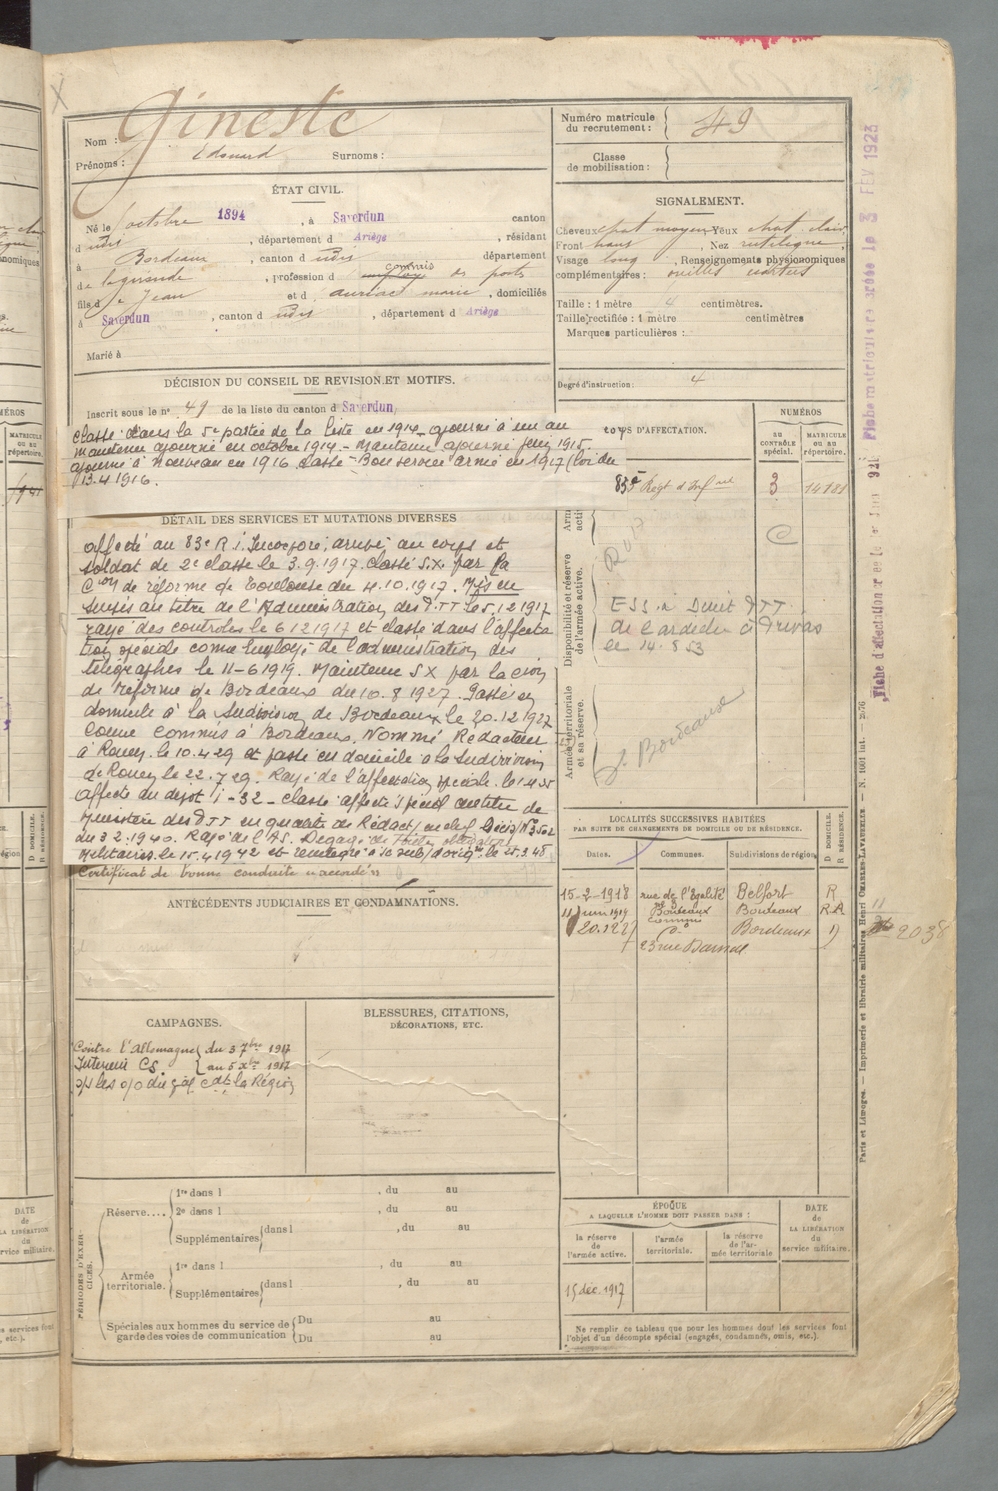 Nom : Gineste
Prénoms : Edouard Surnoms :
Numéro matricule du recrutement : 49
Classe de mobilisation :
ÉTAT CIVIL.
Né le octobre 1894, à Saverdun canton
d udis, département d Ariège, résidant
à Bordeaux, canton d udis département
de la gironde, profession d commis des postes
fils de Jean et d auriac marie, domiciliés
à Saverdun, canton d udis, département d Ariège
Marié à
SIGNALEMENT.
Cheveux chat moyen Yeux chat clair
Front haut, Nez rectiligne,
Visage long, Renseignements physionomiques
complémentaires : oreilles écartées
Taille : 1 mètre centimètres.
Taille rectifiée : 1 mètre centimètres
Marques particulières :
Degré d'instruction : 4
DÉCISION DU CONSEIL DE REVISION ET MOTIFS.
Inscrit sous le n° 49 de la liste du canton d Saverdun,
classé dans la 5e partie de la liste en 1914, ajourné à un an
maintenu ajourné en octobre 1914.- Maintenu ajourné 1915.
ajourné à nouveau en 1916. Classé - Bon service armé en 1917 (loi du
13.4 1916.
CORPS D'AFFECTATION.
NUMÉROS
AU CONTRÔLE spécial.
MATRICULE OU AU répertoire.
83e Régt d'Infanie 3
DÉTAIL DES SERVICES ET MUTATIONS DIVERSES
affecté au 83e R.i. Incorporé, arrivé au corps et
soldat de 2e classe le 3.9.1917. classé S.X. par la
Con de réforme de Toulouse du 4.10.1917. Mis en
sursis au titre de l'Administration des PTT le 5.12 1917
rayé des controles le 6 12 1917 et classé dans l'affecta
tion spéciale comme Employé de l'administration des
télégraphes le 11-6 1919. Maintenu SX par la con
de réforme de Bordeaux du 10.8 1927. Passé en
domicile à la Subdivision de Bordeaux le 20.12 1927
comme commis à Bordeaux. Nommé Rédacteur
à Rouen le 10.4.29 et passé en domicile à la Subdivision
de Rouen le 22.7 29. Rayé de l'affectation spéciale le
affecté au dépôt i-32 - classé affecté spécial au titre du
Ministère des PTT en qualité de Rédact/ en chef
du 3 2.1940. Rayé de l'AS. Dégagé de toutes obligations
Militaires le 15.4 1942 et le 25.3.48
Certificat de bonne conduite "accordé"
Disponibilité et réserve de l'armée active.
de l'ardèche à Privas
le 14.8 53
Armée territoriale et sa réserve.
Bordeaux
LOCALITÉS SUCCESSIVES HABITÉES
PAR SUITE DE CHANGEMENTS DE DOMICILE OU DE RÉSIDENCE.
Dates. Communes. Subdivisions de région. D DOMICILE. R RÉSIDENCE.
15-2-1918 rue de l'Egalité Belfort R
11 Juin 1919 Bordeaux Bordeaux R.A
commis
20.12 27 do Bordeaux D
23 rue
2038
ANTÉCÉDENTS JUDICIAIRES ET CONDAMNATIONS.
CAMPAGNES.
Contre l'Allemagne du 3 7bre 1917
Interieur CS. au 5 Xbre 1917
BLESSURES, CITATIONS,
DÉCORATIONS, ETC.
PÉRIODES D'EXERCICES.
Réserve.... 1re dans l , du au
2e dans l , du au
Supplémentaires dans l , du au
Armée territoriale. 1re dans l , du au
Supplémentaires dans l , du au
Spéciales aux hommes du service de garde des voies de communication Du au
Du au
ÉPOQUE
A LAQUELLE L'HOMME DOIT PASSER DANS :
la réserve de l'armée active.
l'armée territoriale.
la réserve de l'armée territoriale
DATE de LA LIBÉRATION du service militaire.
15 déc. 1917
Ne remplir ce tableau que pour les hommes dont les services font
l'objet d'un décompte spécial (engagés, condamnés, omis, etc.).
Paris et Limoges. — Imprimerie et librairie militaires Henri CHARLES-LAVAUZELLE — N. 1001 int.
Fiche matricule créée le 3 FEV 1923
Fiche d'affectation